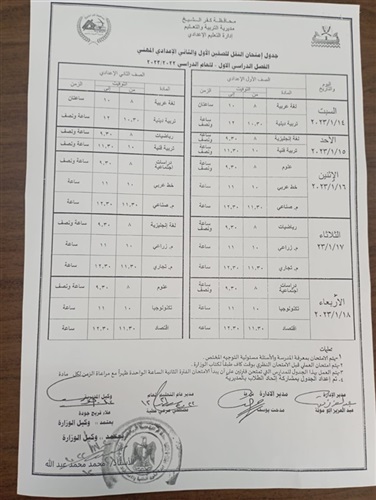 محافظة كفر الشيخ
مديرية التربية والتعليم
إدارة التعليم الإعدادي
جدول إمتحان النقل للصفين الأول والثاني الإعدادي المهني
الفصل الدراسي الأول - للعام الدراسي ٢٠٢٣/٢٠٢٢
اليوم والتاريخ الصف الأول الإعدادي الصف الثاني الإعدادي
المادة التوقيت من إلى الزمن المادة التوقيت من إلى الزمن
السبت ٢٠٢٣/١/١٤ لغة عربية ٨ ١٠ ساعتان لغة عربية ٨ ١٠ ساعتان
تربية دينية ١٠,٣٠ ١٢ ساعة ونصف تربية دينية ١٠,٣٠ ١٢ ساعة ونصف
الأحد ٢٠٢٣/١/١٥ لغة إنجليزية ٨ ٩,٣٠ ساعة ونصف رياضيات ٨ ٩,٣٠ ساعة ونصف
تربية فنية ١٠ ١١ ساعة تربية فنية ١٠ ١١ ساعة
الإثنين ٢٠٢٣/١/١٦ علوم ٨ ٩,٣٠ ساعة ونصف دراسات إجتماعية ٨ ٩,٣٠ ساعة ونصف
خط عربي ١٠ ١١ ساعة خط عربي ١٠ ١١ ساعة
م. صناعي ١١,٣٠ ١٢,٣٠ ساعة م. صناعي ١١,٣٠ ١٢,٣٠ ساعة
الثلاثاء ٢٣/١/١٧ رياضيات ٨ ٩,٣٠ ساعة ونصف لغة إنجليزية ٨ ٩,٣٠ ساعة ونصف
م. زراعي ١٠ ١١ ساعة م. زراعي ١٠ ١١ ساعة
م. تجاري ١١,٣٠ ١٢,٣٠ ساعة م. تجاري ١١,٣٠ ١٢,٣٠ ساعة
الأربعاء ٢٠٢٣/١/١٨ دراسات إجتماعية ٨ ٩,٣٠ ساعة ونصف علوم ٨ ٩,٣٠ ساعة ونصف
تكنولوجيا ١٠ ١١ ساعة تكنولوجيا ١٠ ١١ ساعة
اقتصاد ١١,٣٠ ١٢,٣٠ ساعة اقتصاد ١١,٣٠ ١٢,٣٠ ساعة
يتم الامتحان بمعرفة المدرسة والأسئلة مسئولية التوجيه المختص
يتم الامتحان العملي قبل الامتحان النظري بوقت كاف طبقاً لكتاب الوزارة
مدير الإدارة مدير الإدارة مدير عام التعليم العام
مدحت يوسف
وكيل الوزارة
محمد محمد عبد الله